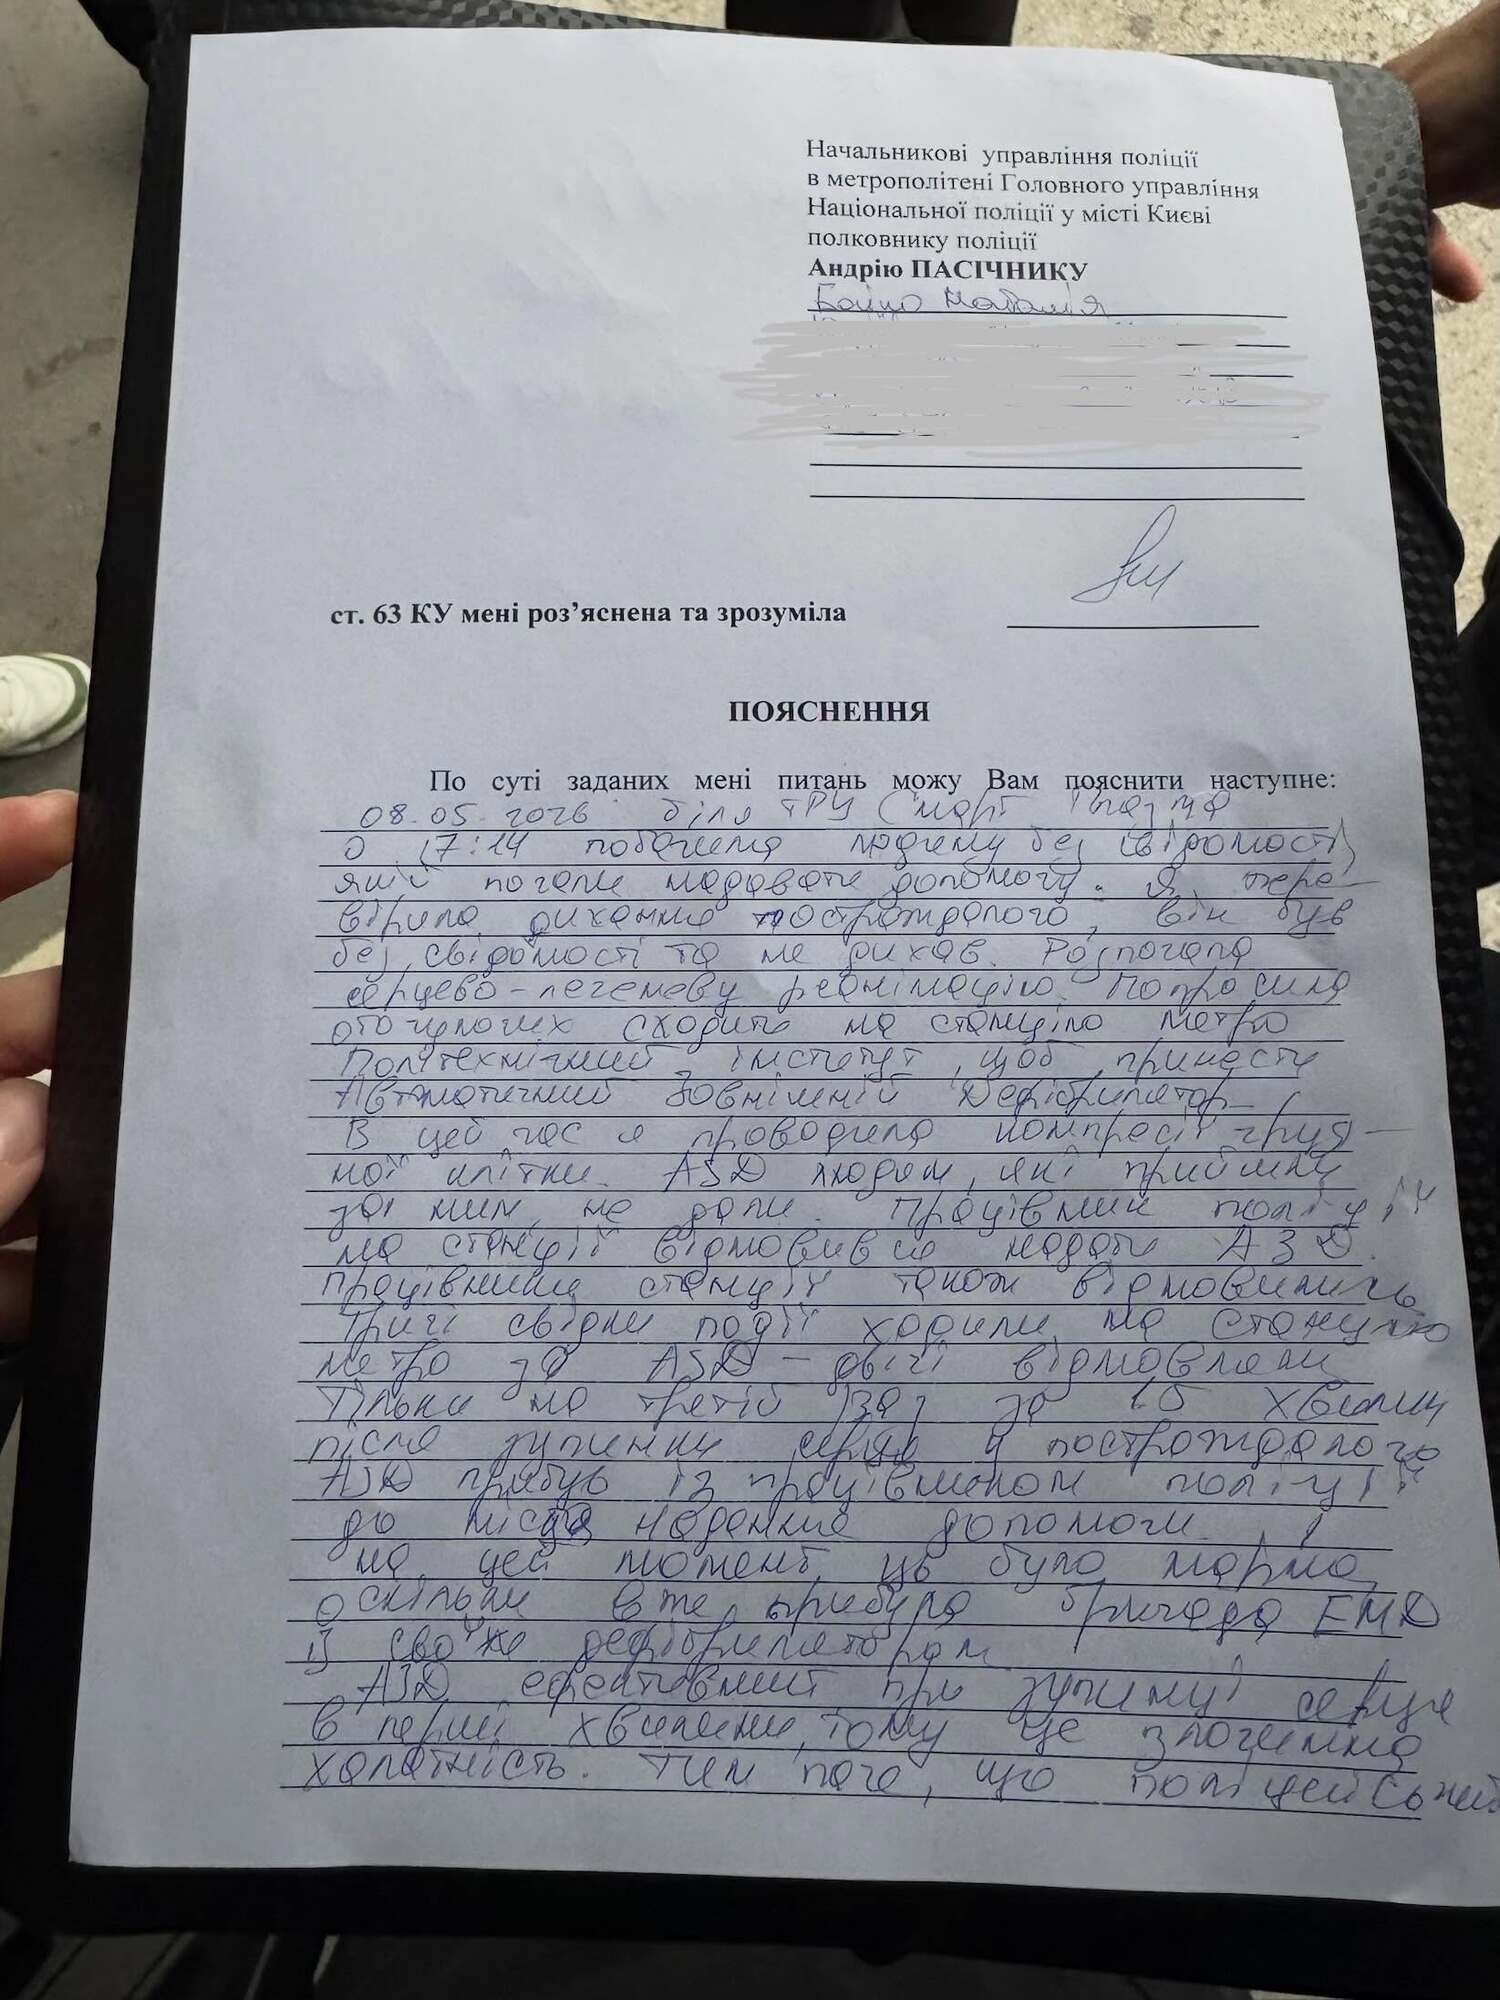 Начальникові управління поліції
в метрополітені Головного управління
Національної поліції у місті Києві
полковнику поліції
Андрію ПАСІЧНИКУ
Бойко Наталія
ст. 63 КУ мені роз’яснена та зрозуміла
ПОЯСНЕННЯ
По суті заданих мені питань можу Вам пояснити наступне:
08.05.2026 біля ТРЦ Смарт Плаза
о 17:14 побачила людину без свідомості,
якій почали надавати допомогу. Я пере-
вірила дихання постраждалого, він був
без свідомості та не дихав. Розпочала
серцево-легеневу реанімацію. Попросила
оточуючих сходити на станцію метро
Політехнічний інститут, щоб принести
Автоматичний Зовнішній Дефібрилятор.
В цей час я проводила компресії груд-
ної клітки. АЗД людям, які прийшли
за ним, не дали. Працівник поліції
на станції відмовився надати АЗД.
працівники станції також відмовились
Тричі свідки події ходили на станцію
метро за АЗД - двічі відмовляли
Тільки на третій раз за 15 хвилин
після зупинки серця у постраждалого
АЗД прибув із працівником поліції
до місця надання допомоги.
на цей момент це було марно,
оскільки вже прибула бригада ЕМД
зі своїм дефібрилятором
АЗД ефективний при зупинці серця
в перші хвилини, тому це злочинна
халатність. Тим паче, що поліцейський